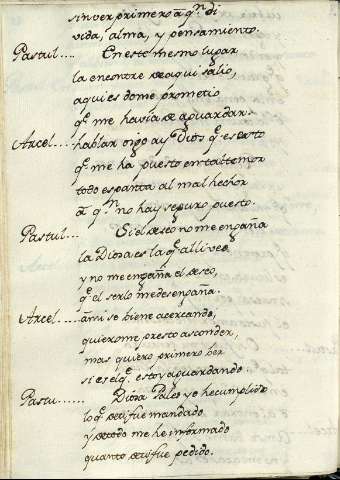 sin ver primero a qⁿ di
vida, alma, y pensamiento.
Pastul.... En este mesmo lugar
la encontre de aqui salio,
aqui es do me prometio
q̃ me havia de aguardar.
Arcel.... hablar oigo ay Dios q̃ es esto
q̃ me ha puesto en tal temor
todo espanta al mal hechor
a qⁿ no hay seguro puesto.
Pastul... Si el deseo no me engaña
la Diosa es la q̃ alli veo
y no me engaña el deseo,
q̃ el serlo me desengaña.
Arcel..... aqui se biene acercando,
quierome presto asconder,
mas quiero primero ber
si es el q̃ estoy aguardando.
Pastu...... Diosa Pales ya he cumplido
lo q̃ de ti fue mandado
y de todo me he informado
quanto de ti fue pedido.